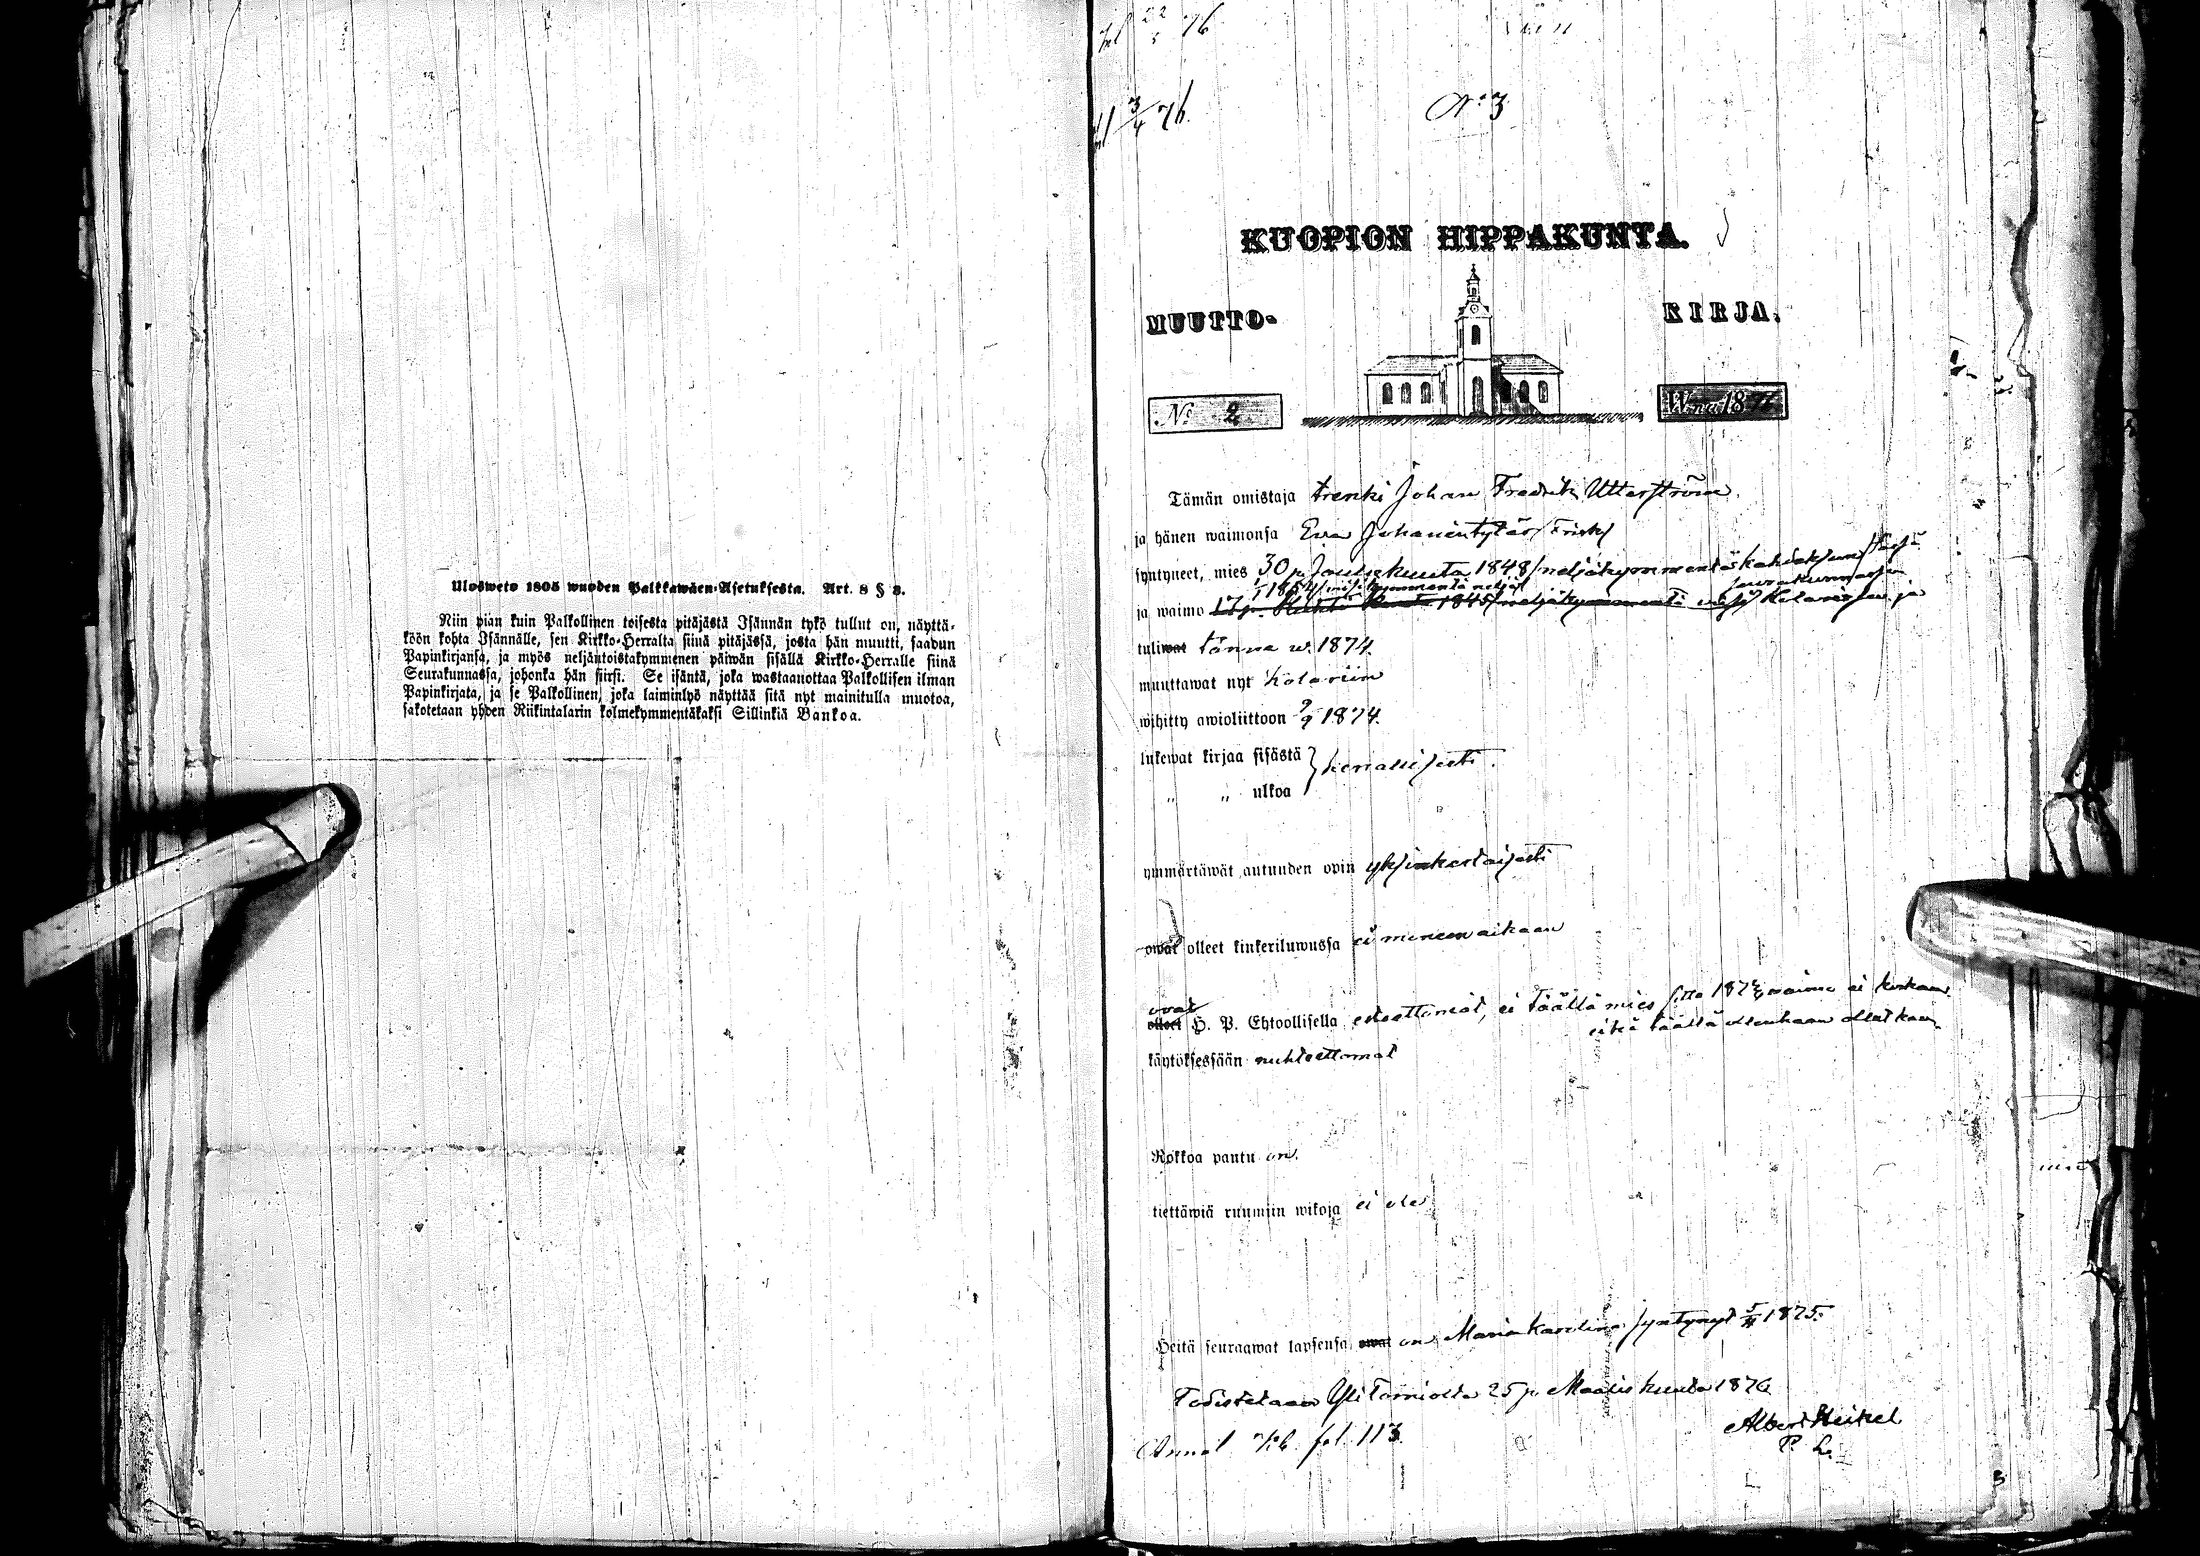 Ulosweto 1805 wuoden Palkkawäen-Asetuksesta. Art. 8 § 3.
Niin pian kuin Palkollinen toisesta pitäjästä Isännän tykö tullut on, näyttä-
köön kohta Isännälle, sen Kirkko-Herralta siinä pitäjässä, josta hän muutti, saadun
Papinkirjansa, ja myös neljäntoistakymmenen päiwän sisällä Kirkko-Herralle siinä
Seurakunnassa, johonka hän siirsi. Se isäntä, joka wastaanottaa Palkollisen ilman
Papinkirjata, ja se Palkollinen, joka laiminlyö näyttää sitä nyt mainitulla muotoa,
sakotetaan yhden Riikintalarin kolmekymmentäkaksi Sillinkiä Bankoa.
22/5 76
3/4 76.
N:o 3
KUOPION HIPPAKUNTA.
MUUTTO- KIRJA.
No 2 W:na 18
Tämän omistaja trenki Johan Fredrik Utterström
ja hänen waimonsa Eva Johanintytär /Frisk/
syntyneet, mies 30 p. Joulukuuta 1848 /neljäkymmentäkahdeksan/ tässä
seurakunnassa
1/1 1854 /viisikymmentä neljä/
ja waimo 17 p. Huhti kuuta 1845 /neljäkymmentä viisi/ Kolarissa ja
tuliwat tänne w. 1874.
muuttawat nyt Kolariin
wihitty awioliittoon 9/9 1874.
lukewat kirjaa sisästä } kenallisesti.
„ „ ulkoa
ymmärtäwät autuuden opin yksinkertaisesti
owat olleet kinkeriluwussa ei meneen aikaan
ovat
olleet H. P. Ehtoollisella esteettömät, ei täällä mies sitte 187 waimo ei koskaan
eikä täällä ollenkaan ollut kan
käytöksessään nuhteettomat
Rokkoa pantu on.
tiettäwiä ruumiin wikoja ei ole
Heitä seuraawat lapsensa owat on Maria Karolina syntynyt 5/11 1875.
Todistetaan Yli Torniolta 25 p. Maaliskuuta 1876
Albert Heikel
P. L.
Annot fol. 113.